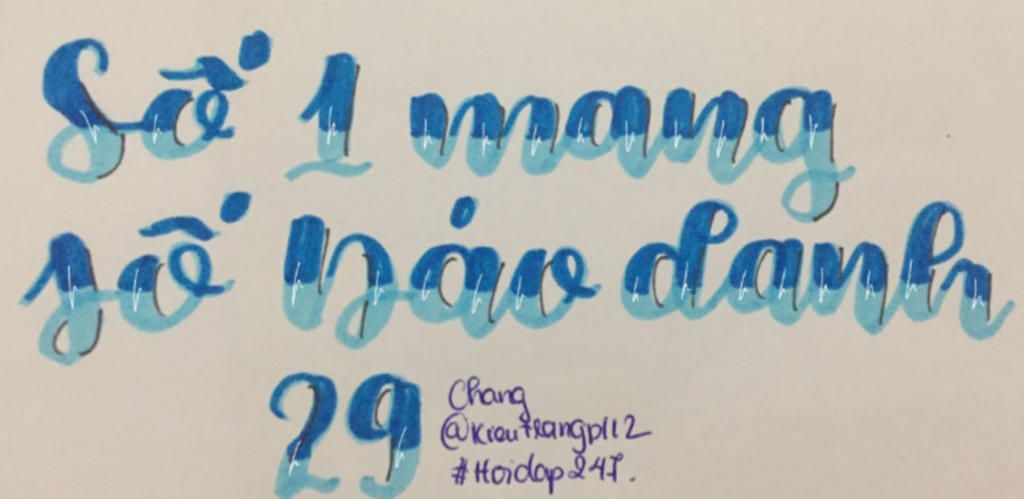 Số 1 mang
số báo danh
29
Chang
@kieutrangpl12
#Hoidap247.